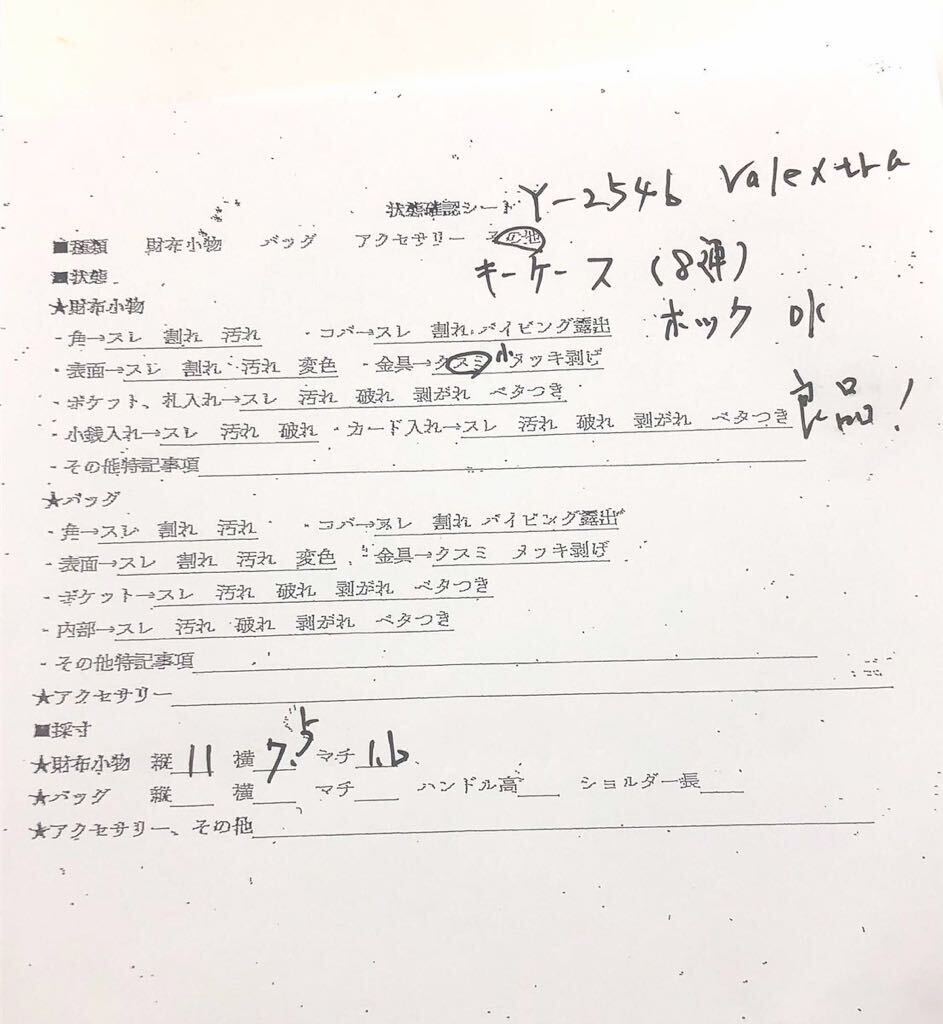 状態確認シート Y-2546 Valextra
■種類 財布小物 バッグ アクセサリー その他
キーケース (8連)
■状態
★財布小物
ホック OK
・角→スレ 割れ 汚れ ・コバ→スレ 割れ パイピング露出
・表面→スレ 割れ 汚れ 変色 ・金具→クスミ 小 メッキ剥げ
・ポケット、札入れ→スレ 汚れ 破れ 剥がれ ベタつき
良品!
・小銭入れ→スレ 汚れ 破れ ・カード入れ→スレ 汚れ 破れ 剥がれ ベタつき
・その他特記事項
★バッグ
・角→スレ 割れ 汚れ ・コバ→スレ 割れ パイピング露出
・表面→スレ 割れ 汚れ 変色 ・金具→クスミ メッキ剥げ
・ポケット→スレ 汚れ 破れ 剥がれ ベタつき
・内部→スレ 汚れ 破れ 剥がれ ベタつき
・その他特記事項
★アクセサリー
■採寸
★財布小物 縦 11 横 7.5 マチ 1.6
★バッグ 縦 横 マチ ハンドル高 ショルダー長
★アクセサリー、その他